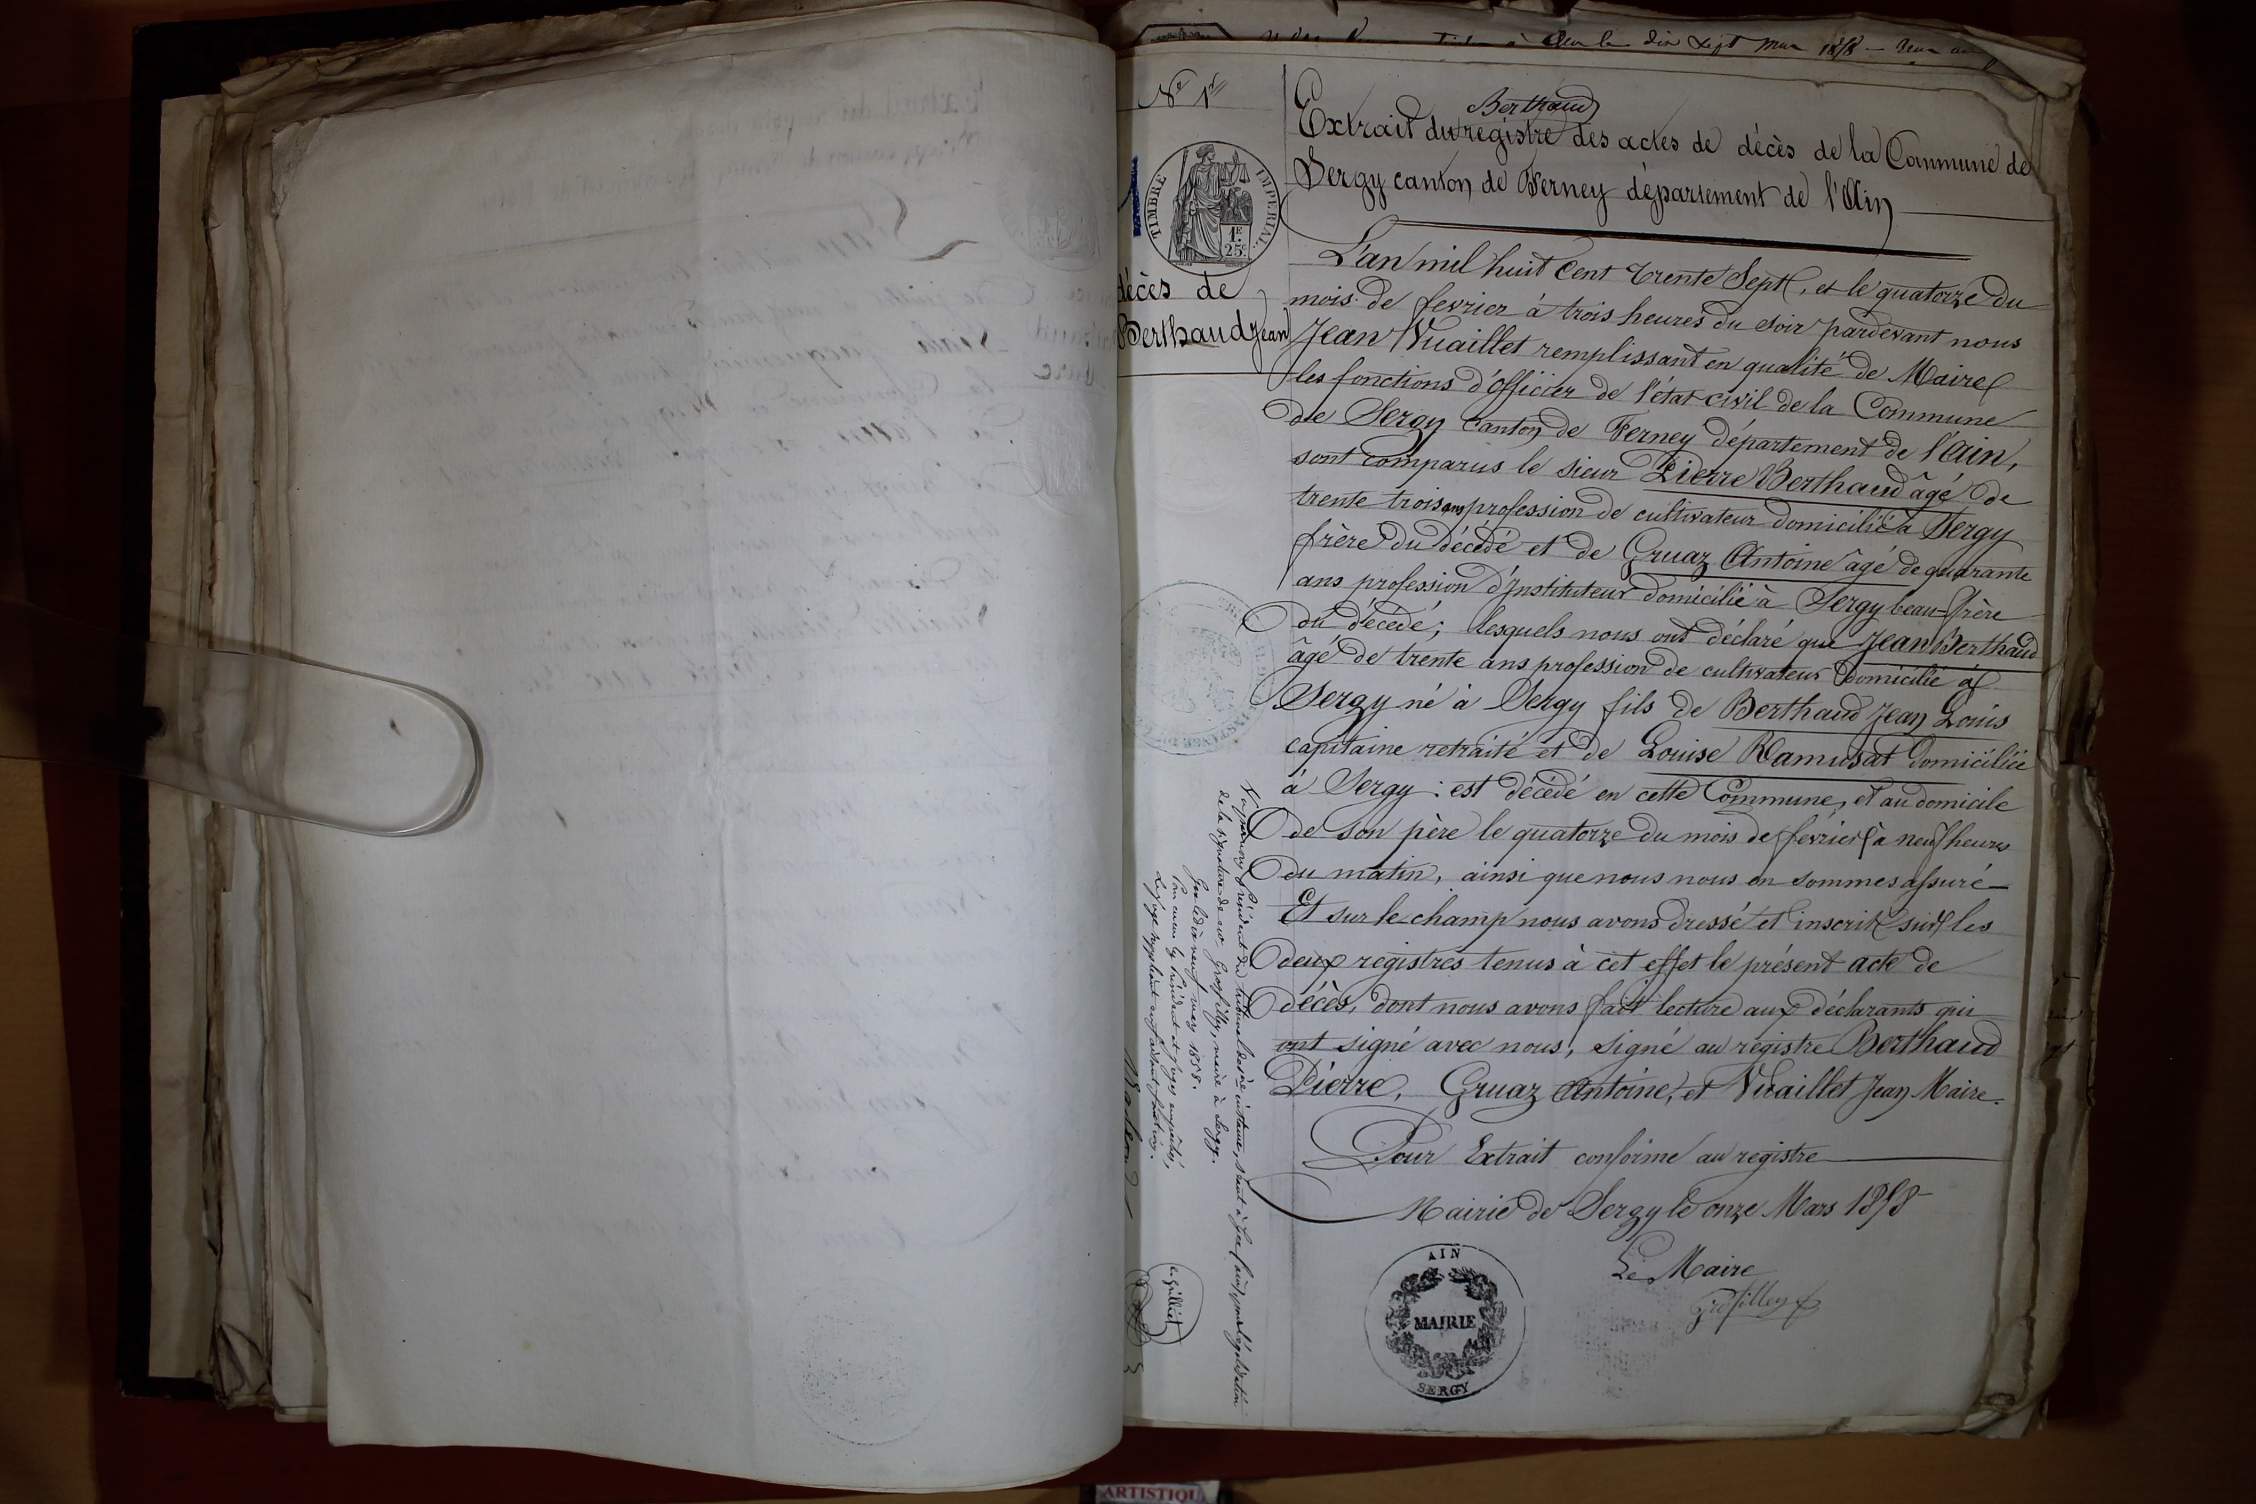 Nº 1er
TIMBRE IMPERIAL
1F
25c
décès de
Berthaud Jean
Berthaud
Extrait du registre des actes de décès de la Commune de
Sergy canton de Ferney département de l'Ain
L'an mil huit Cent trente Sept, et le quatorze du
mois de fevrier à trois heures du soir pardevant nous
Jean Vuaillet remplissant en qualité de Maire
les fonctions d'officier de l'état civil de la Commune
de Sergy Canton de Ferney département de l'Ain,
sont comparus le sieur Pierre Berthaud âgé de
trente trois ans profession de cultivateur domicilié à Sergy
frère du décédé et de Gruaz Antoine âgé de quarante
ans profession d'Instituteur domicilié à Sergy beau-frère
du décédé; lesquels nous ont déclaré que Jean Berthaud
âgé de trente ans profession de cultivateur domicilié à
Sergy né à Sergy fils de Berthaud Jean Louis
capitaine retraité et de Louise Ramusat domiciliée
à Sergy: est décédé en cette Commune, et au domicile
de son père le quatorze du mois de février à neuf heures
du matin, ainsi que nous nous en sommes assuré
Et sur le champ nous avons dressé et inscrit sur les
deux registres tenus à cet effet le présent acte de
décès, dont nous avons fait lecture aux déclarants qui
ont signé avec nous, signé au registre Berthaud
Pierre, Gruaz Antoine, et Vuaillet Jean Maire.
Pour Extrait conforme au registre
Mairie de Sergy le onze Mars 1858
Le Maire
Grosfilley
AIN
MAIRIE
SERGY
Vu par nous Président du tribunal de 1re instance, séant à Gex (ain), pour légalisation
de la signature de Mr Grosfilley, maire à Sergy.
Gex le dix neuf mars 1858.
Pour cause les Président et Juges empêchés,
Le Juge suppléant
ARTISTIQU